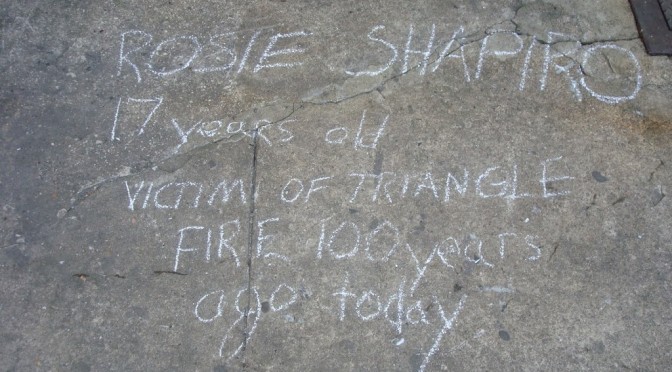 ROSIE SHAPIRO
17 years old
VICTIM OF TRIANGLE
FIRE 100 years
ago today